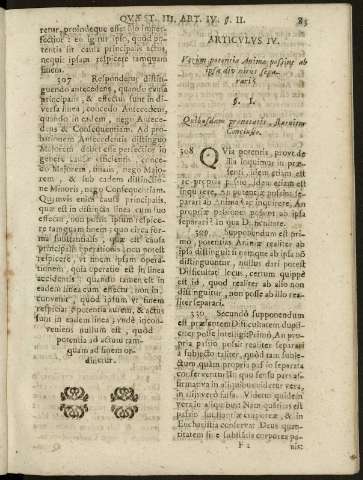 QVÆST. III. ART. IV. §. II. 83
retur, proindeque esset illo imper-
fectior: eo igitur ipso, quòd po-
tentia sit causa principalis actus,
nequit ipsam respicere tamquam
finem.
307 Respondetur, distin-
guendo antecedens, quando causa
principalis, & effectus sunt in di-
versa linea, concedo Antecedens,
quando in eadem, nego Antece-
dens & Consequentiam. Ad pro-
bationem Antecedentis distinguo
Majorem, debet esse perfectior in
genere causæ efficientis, conce-
do Majorem, finalis, nego Majo-
rem, & sub eadem distinctio-
ne Minoris, nego Consequentiam.
Quamvis enim causa principalis,
quæ est in distincta linea cum suo
effectu, non possit ipsum respice-
re tamquam finem; quo circa for-
ma substantialis, quæ est causa
principalis operationis, non potest
respicere, ut finem ipsam opera-
tionem, quia operatio est in linea
accidentis: quando tamen est in
eadem linea cum effectu, non in-
convenit, quòd ipsum ut finem
respiciat: potentia autem, & actus
sunt in eadem linea; unde incon-
veniens nullum est, quòd
potentia ad actum tam-
quam ad finem or-
dinetur.
ARTICULUS IV.
Utrùm potentiæ Animæ possint ab
ipsa divinitus sepa-
rari?
§. I.
Quibusdam prænotatis, statuitur
Conclusio.
308 QUia potentia, prout de
illa loquimur in præ-
senti, idem est
re proprie passio, idem etiam est
inquirere, An potentiæ possint se-
parari ab Anima? ac inquirere, An
propriæ passiones possint ab ipsa
separari? In qua Difficultate.
309 Supponendum est pri-
mò, potentias Animæ realiter ab
ipsa distingui: si namque ab ipsa non
distinguuntur, nullus dari potest
Difficultati locus, certum quippe
est id, quod realiter ab alio non
distinguitur, non posse ab illo rea-
liter separari.
330 Secundò supponendum
est præsentem Difficultatem dupli-
citer posse intelligi: Primò, An pro-
pria passio possit realiter separari
à subjecto taliter, quòd tam subje-
ctum, quàm propria passio separata
conserventur: in quo sensu pars af-
firmativa in aliquibus videtur vera,
in aliis verò falsa. Videtur quidem
vera in aliquibus: Nam quantitas est
passio substantiæ corporeæ, & in
Eucharistia conservat Deus quan-
titatem sine substantia corporea pa-
F 2 nis: